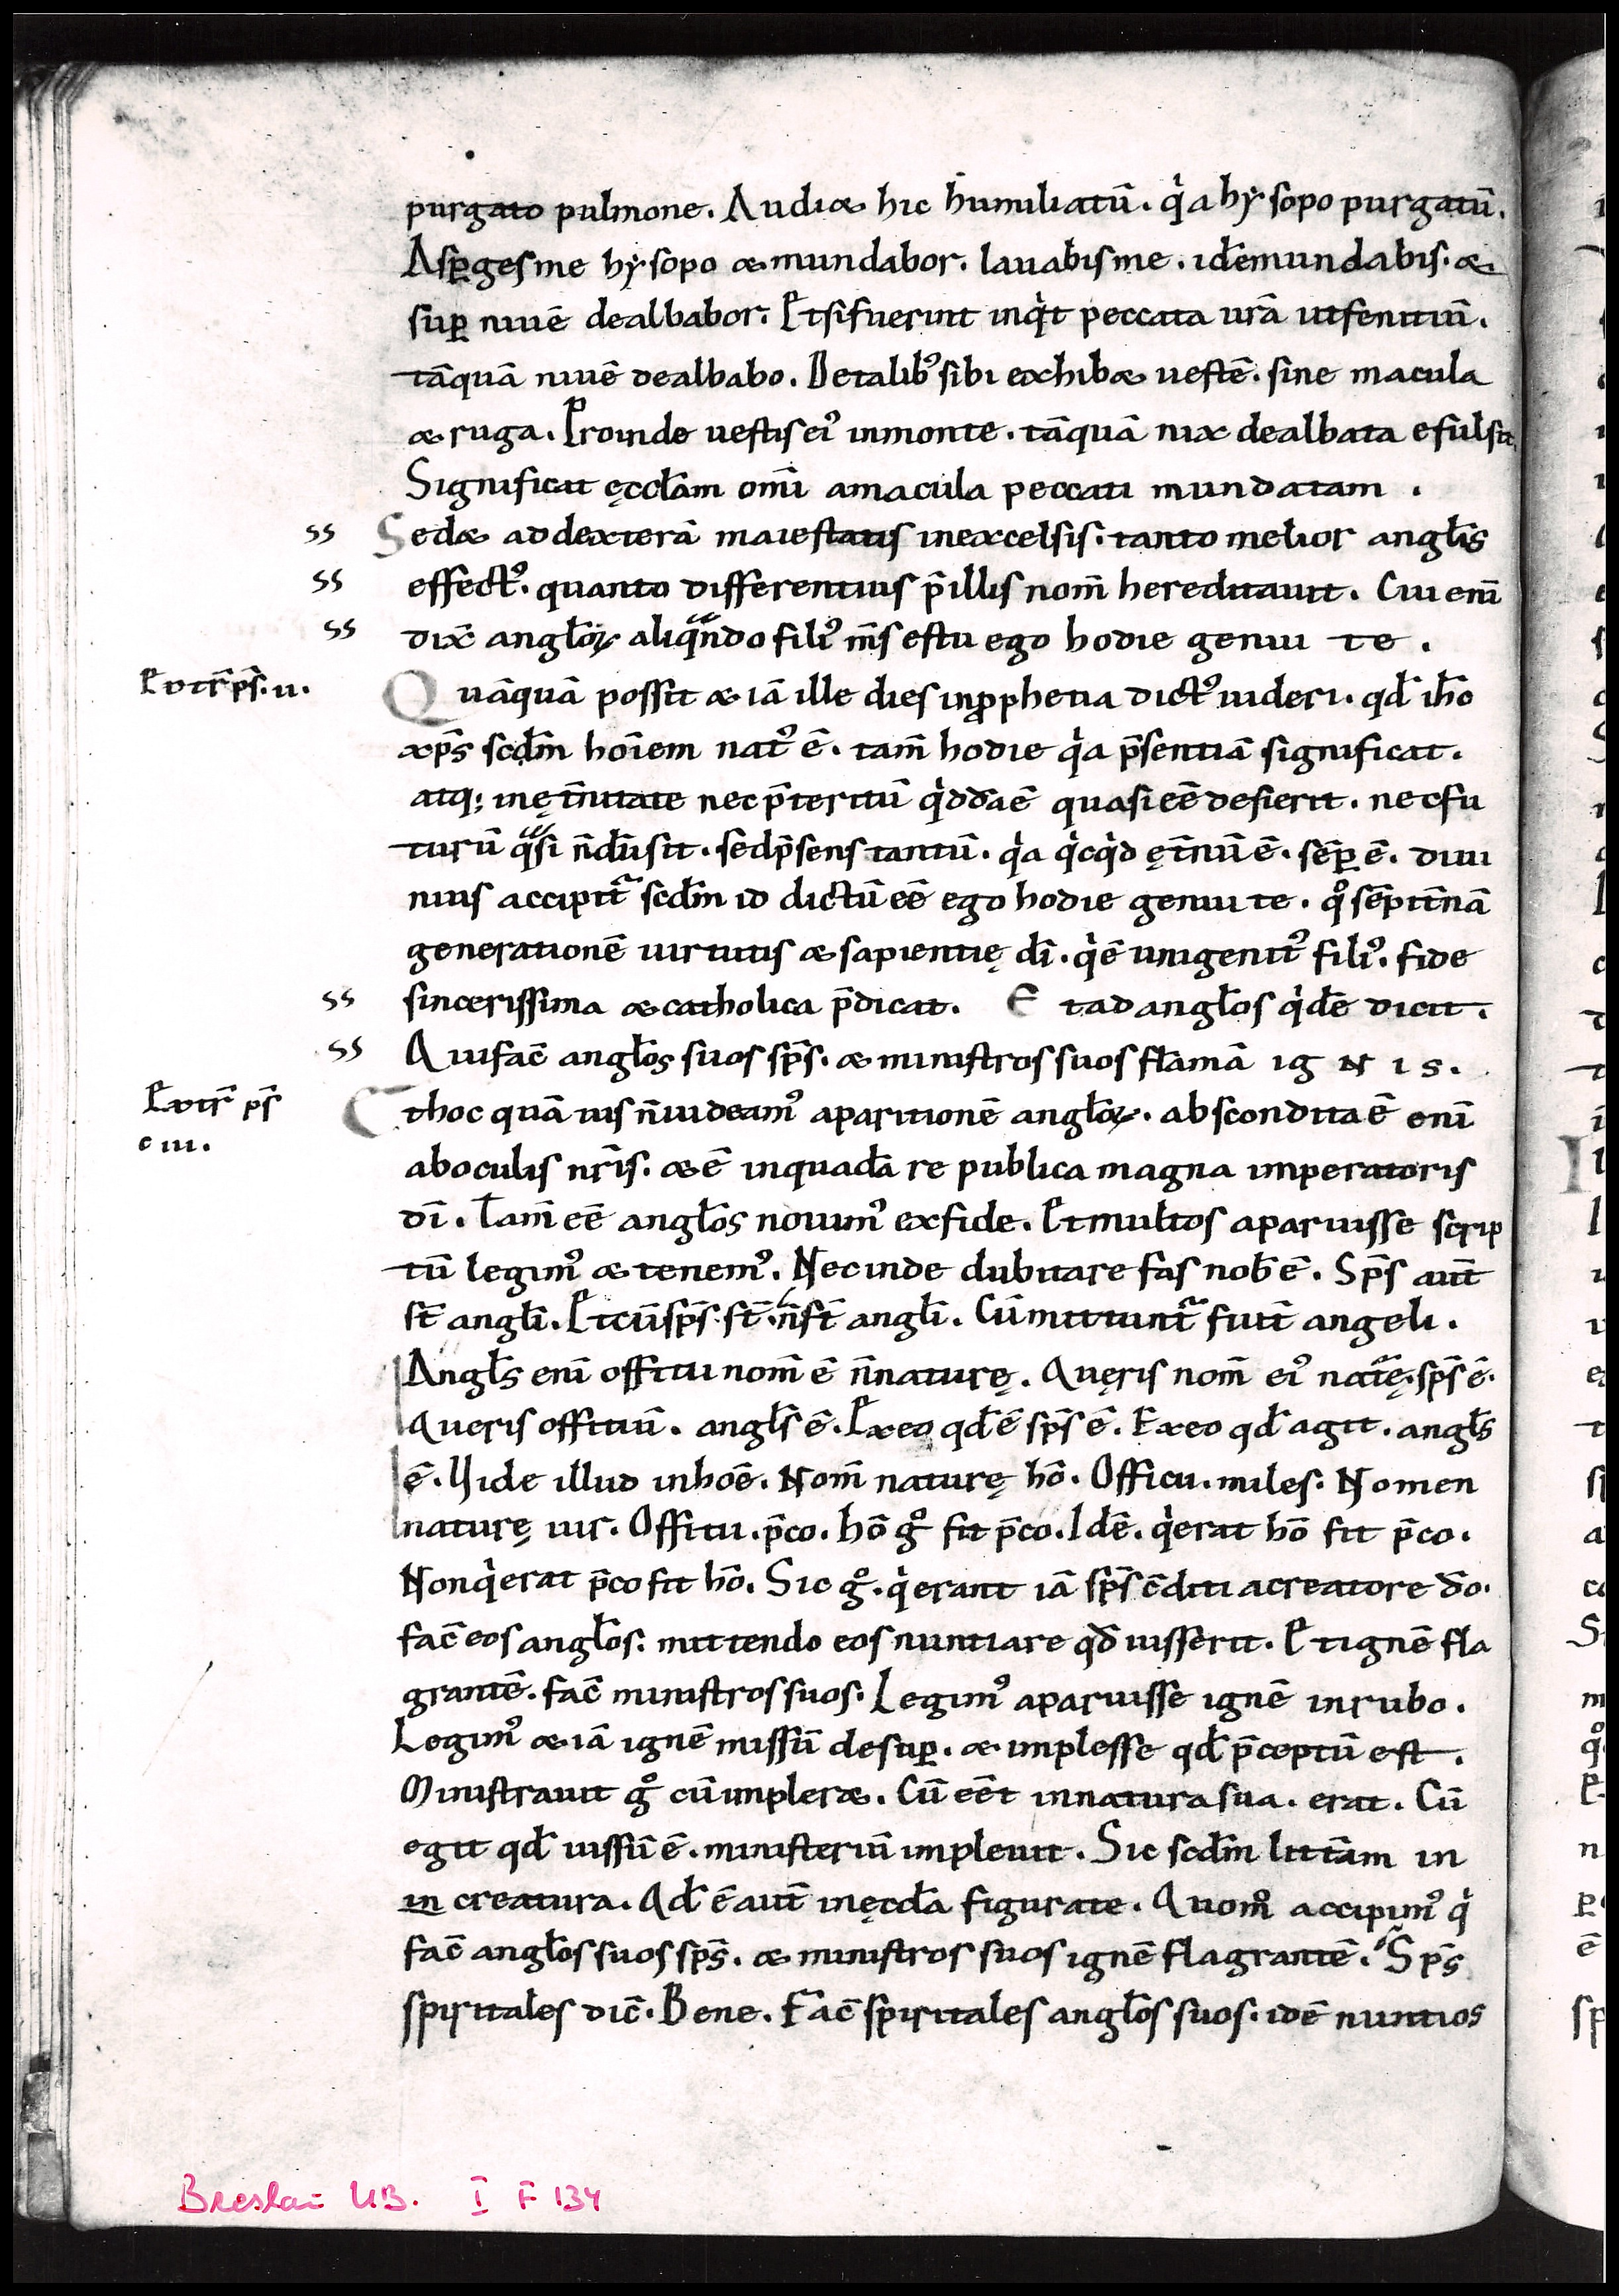 purgato pulmone. Audiæ hic humiliatū. qͥa hẏsopo purgatū.
Asꝑges me hẏsopo & mundabor. lauabis me. idē mundabis. &
suꝑ niuē dealbabor. Et si fuerint inqͥt peccata ur̄a ut fenitiū.
tāquā niuē dealbabo. De talibꝰ sibi exhib& uestē. sine macula
& ruga. Proinde uestis eiꝰ in monte. tāquā nix dealbata efulsit.
Significat ęccl̄am om̄i a macula peccati mundatam .
ss Sed& ad dexterā maiestatis in excelsis. tanto melior angl̄is
ss effectꝰ. quanto differentius p̄ illis nom̄ hereditauit. Cui eni
ss dix̄ angl̄oꝝ aliqͣndo filiꝰ m̄s es tu ego hodie genui te .
Ex tr̄ ps̄. ii. Quāquā possit & iā ille dies in ꝓphetia dictꝰ uideri. qd̄ ih̄o
xp̄s scd̄m hoīem natꝰ ē. tam̄ hodie qͥa p̄sentiā significat.
atq; in ęt̄nitate nec p̄teritū qͥddā ē quasi eē desierit. nec fu
turū qͣsi n̄dū sit. sed p̄sens tantū. qͥa qͥcqͥd ęt̄nū ē. sēꝑ ē. diui
nius accipit᷑ scd̄m id dictū eē ego hodie genui te. qͦ sēpit̄nā
generationē uirtutis & sapientię dī. qͥ ē unigenitꝰ filiꝰ. fide
ss sincerissima & catholica p̄dicat. Et ad angl̄os qͥdē dicit.
ss Qui fac̄ angl̄os suos sp̄s. & ministros suos flāmā ignis.
Ex tr̄ ps̄ Et hoc quāuis n̄ uideamꝰ aparitionē angl̄oꝝ. abscondita ē enī
c iii. ab oculis nr̄is. & ē in quadā re publica magna imperatoris
dī. Tam̄ eē angl̄os nouimꝰ ex fide. Et multos aparuisse scrip
tū legimꝰ & tenemꝰ. Nec inde dubitare fas nob̄ ē. Sp̄s aut̄
st̄ angl̄i. Et cū sp̄s st̄. n̄ st̄ angl̄i. Cū mittunt᷑ fiut̄ angeli.
Angl̄s enī offitii nom̄ ē n̄ naturę. Quęris nom̄ eiꝰ natͣę. sp̄s ē.
Queris offitiū. angl̄s ē. Ex eo qd̄ ē sp̄s ē. Ex eo qd̄ agit. angl̄s
ē. Vide illud in hoē. Nom̄ naturę hō. Officii. miles. Nomen
naturę uir. Offitii. p̄co. hō gͦ fit p̄co. Idē. qͥ erat hō fit p̄co.
Non qͥ erat p̄co fit hō. Sic gͦ. qͥ erant iā sp̄s c̄diti a creatore dō.
fac̄ eos angl̄os. mittendo eos nuntiare qd̄ iusserit. Et ignē fla
grantē. fac̄ ministros suos. Legimꝰ aparuisse ignē in rubo.
Legimꝰ & iā ignē missū desuꝑ. & implesse qd̄ p̄ceptū est.
Ministrauit gͦ cū impler&. Cū eēt in natura sua. erat. Cū
egit qd̄ iussū ē. ministeriū impleuit. Sic scd̄m litt̄am in
in creatura. Qd̄ ē aut̄ in ęccl̄a figurate. Quomͦ accipimꝰ qͥ
fac̄ angl̄os suos sp̄s. & ministros suos ignē flagrantē. Sp̄s
spiritales dic̄. Bene. Fac̄ spiritales angl̄os suos. idē nuntios
Breslau UB. I F 134